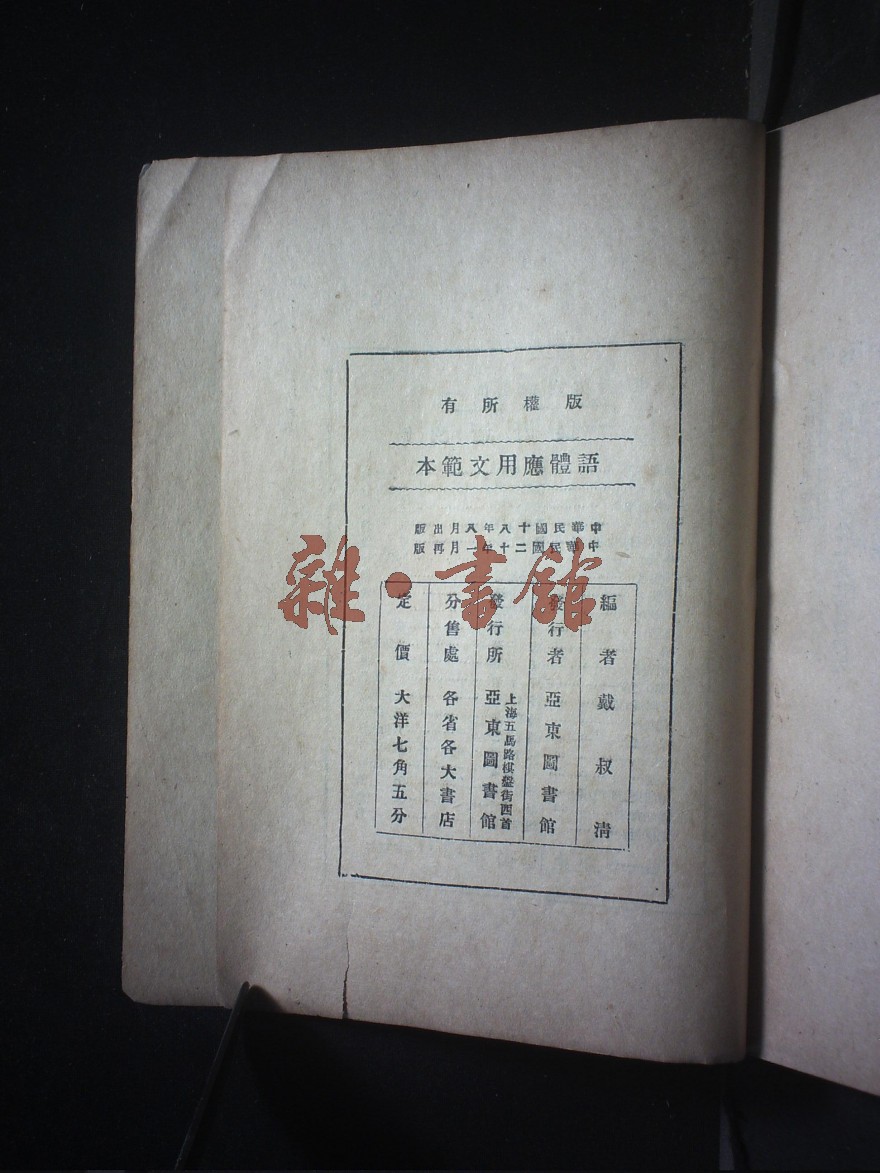 版權所有
語體應用文範本
中華民國十八年八月出版
中華民國二十年一月再版
編者 戴叔清
發行者 亞東圖書館
發行所 亞東圖書館
上海五馬路棋盤街西首
分售處 各省各大書店
定價 大洋七角五分
雜·書館